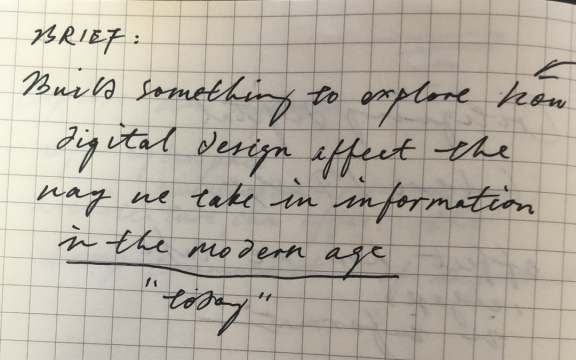 BRIEF:
Build something to explore how
digital design affect the
way we take in information
in the modern age
"today"